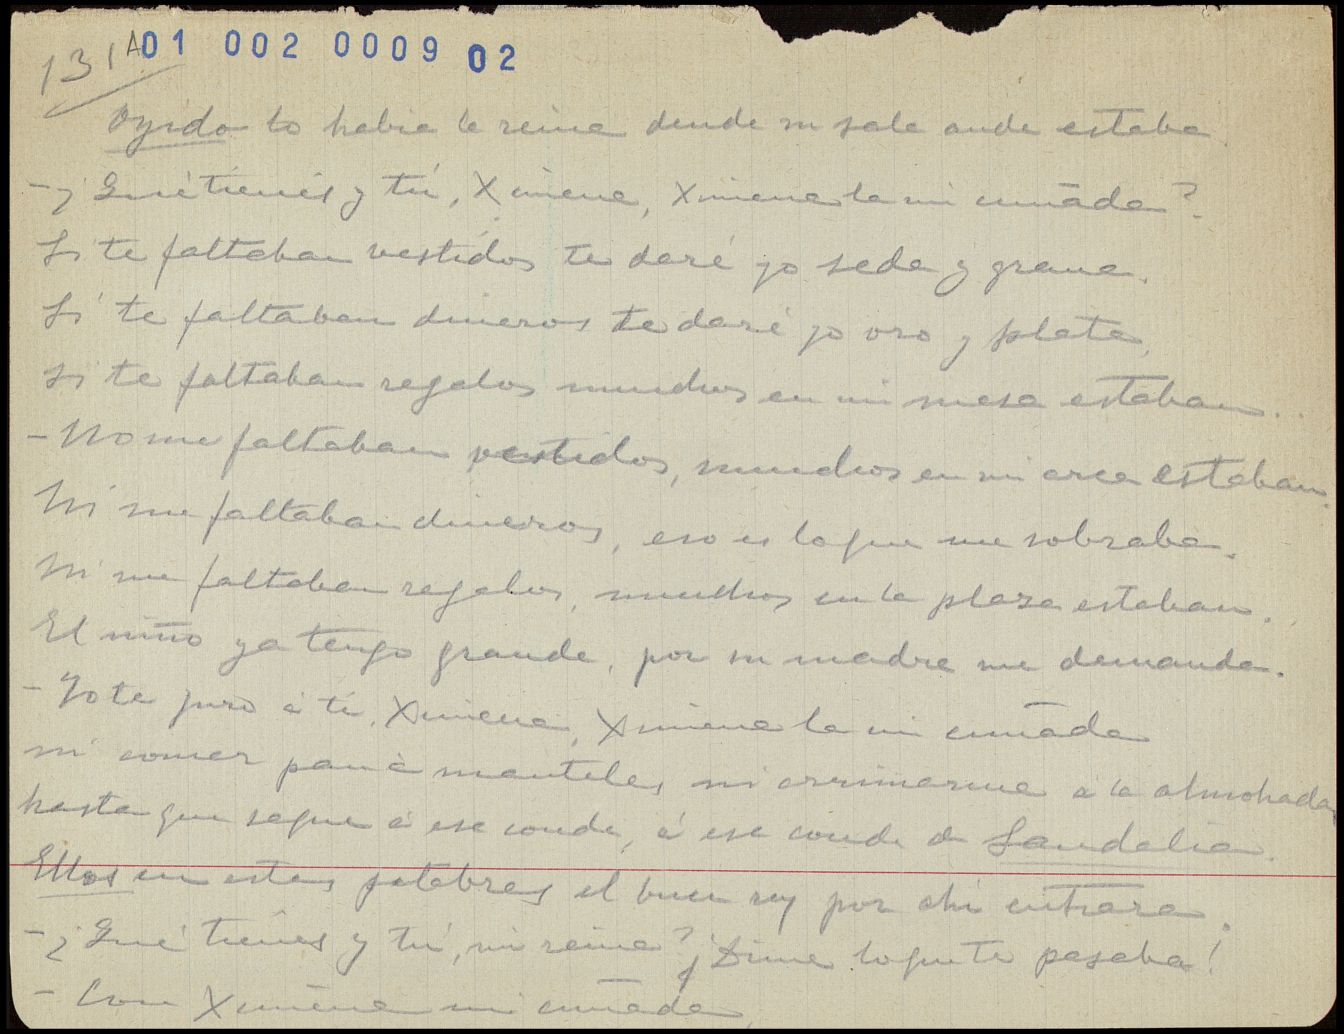 131 A 01 002 0009 02
Oyido lo habia la reina dende su sala ande estaba
- ¿Qué tienés y tú, Ximena, Ximena la mi cuñada?
Si te faltaban vestidos te daré yo seda y grana.
Si te faltaban dineros te daré yo oro y plata,
si te faltaban regalos munchos en mi mesa estaban...
- No me faltaban vestidos, munchos en mi arca estaban.
Ni me faltaban dineros, eso es lo que me sobraba.
Ni me faltaban regalos, munchos en la plaza estaban.
El niño ya tengo grande, por su madre me demanda.
- Yo te juro á ti, Ximena, Ximena la mi cuñada
ni comer pan á manteles ni arrimarme á la almohada
hasta que saque á ese conde, á ese conde de Sandalia.
Ellos en estas palabras el buen rey por ahi entrara.
- ¿Qué tienés y tú, mi reina? ¡Dime lo que te pasaba!
- Con Ximena mi cuñada